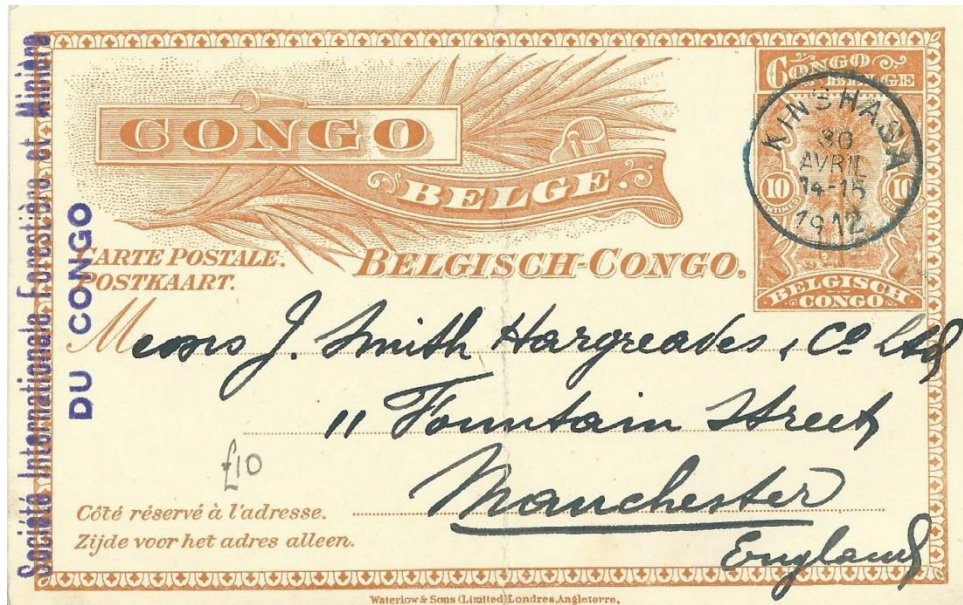 Société Internationale Forestière et Minière
DU CONGO
CONGO
BELGE.
CARTE POSTALE.
POSTKAART.
BELGISCH-CONGO.
CONGO
BELGE
10 10
CENTIMES
BELGISCH
CONGO
KINSHASA
30
AVRIL
14-15
1912
Messrs J. Smith Hargreaves, Co Ltd
11 Fountain Street
£10
Manchester
England
Côté réservé à l'adresse.
Zijde voor het adres alleen.
Waterlow & Sons (Limited) Londres, Angleterre.